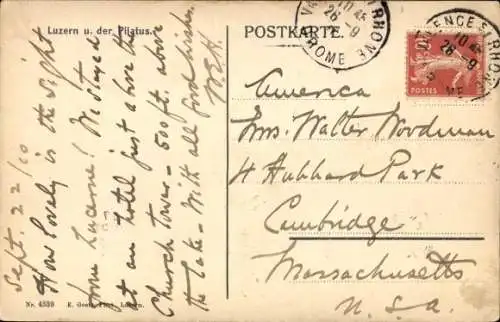 Luzern u. der Pilatus.
POSTKARTE.
Sept. 22/10
How lovely is the sight
from Lucerne! We stayed
at an hotel just above the
Church tower - 500 ft. above
the lake - With all good wishes
America
Mrs. Walter Woodman
4 Hubbard Park
Cambridge
Massachusetts
U.S.A.
VALENCE S. RHONE
10 45
26 - 9
DROME
10
POSTES
Nr. 4539
E. Goetz, Luzern.